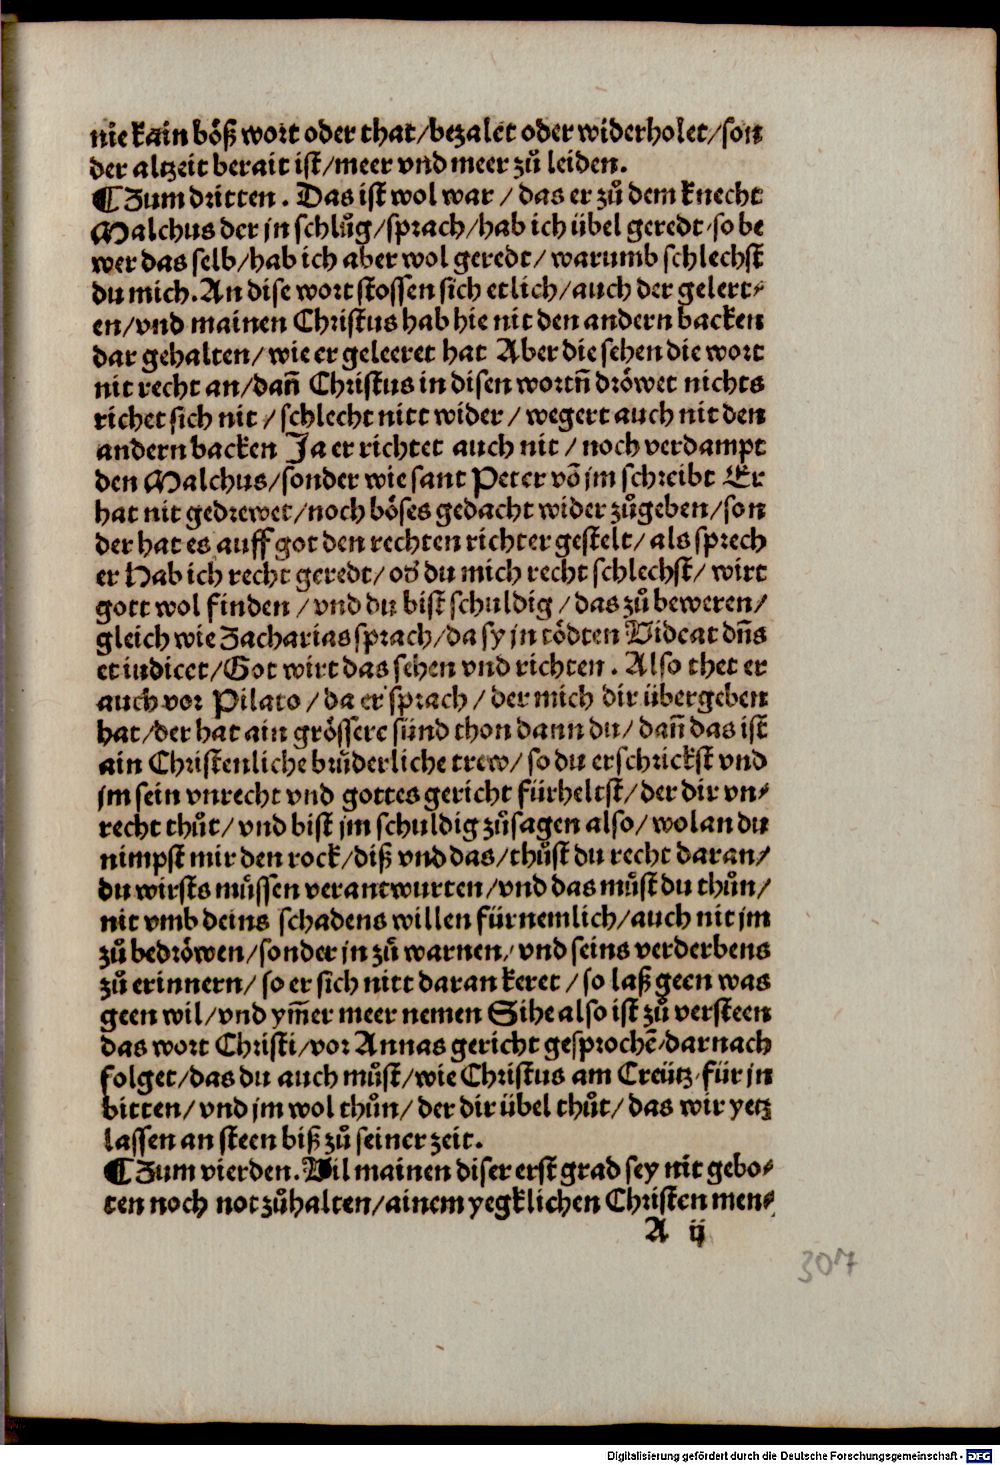 nie kain böß wort oder that/bezalet oder widerholet/son
der altzeit berait ist/meer vnd meer zů leiden.
¶Zum dritten. Das ist wol war / das er zů dem knecht
Malchus der jn schlůg/sprach/hab ich übel geredt/so be
wer das selb/hab ich aber wol geredt/ warumb schlechst
du mich. An dise wort stossen sich etlich/auch der gelert⸗
en/vnd mainen Christus hab hie nit den andern backen
dar gehalten/wie er geleeret hat Aber die sehen die wort
nit recht an/dañ Christus in disen wortñ dröwet nichts
richet sich nit / schlecht nitt wider / wegert auch nit den
andern backen Ja er richtet auch nit / noch verdampt
den Malchus/sonder wie sant Peter võ jm schreibt Er
hat nit gedrewet/noch böses gedacht wider zůgeben/son
der hat es auff got den rechten richter gestelt/ als sprech
er Hab ich recht geredt/ od̕ du mich recht schlechst/ wirt
gott wol finden /vnd du bist schuldig /das zů beweren/
gleich wie Zacharias sprach/da sy jn tödten Videat dñs
et iudicet/Got wirt das sehen vnd richten. Also thet er
auch vor Pilato / da er sprach / der mich dir übergeben
hat/der hat ain grössere sünd thon dann du/ dañ das ist
ain Christenliche brůderliche trew/ so du erschrickst vnd
jm sein vnrecht vnd gottes gericht fürheltst/der dir vn⸗
recht thůt/ vnd bist jm schuldig zůsagen also/wolan du
nimpst mir den rock/diß vnd das/thůst du recht daran/
du wirsts müssen verantwurten/vnd das můst du thůn/
nit vmb deins schadens willen fürnemlich/auch nit jm
zů bedröwen/sonder jn zů warnen/ vnd seins verderbens
zů erinnern/ so er sich nitt daran keret / so laß geen was
geen wil/vnd ym̃er meer nemen Sihe also ist zů versteen
das wort Christi/vor Annas gericht gesprochẽ/darnach
folget/das du auch můst/wie Christus am Creütz/für jn
bitten/vnd jm wol thůn/ der dir übel thůt/ das wir yetz
lassen an steen biß zů seiner zeit.
¶Zum vierden. Vil mainen diser erst grad sey nit gebo⸗
ten noch not zůhalten/ainem yegklichen Christen men⸗
A ij
307
Digitalisierung gefördert durch die Deutsche Forschungsgemeinschaft - DFG